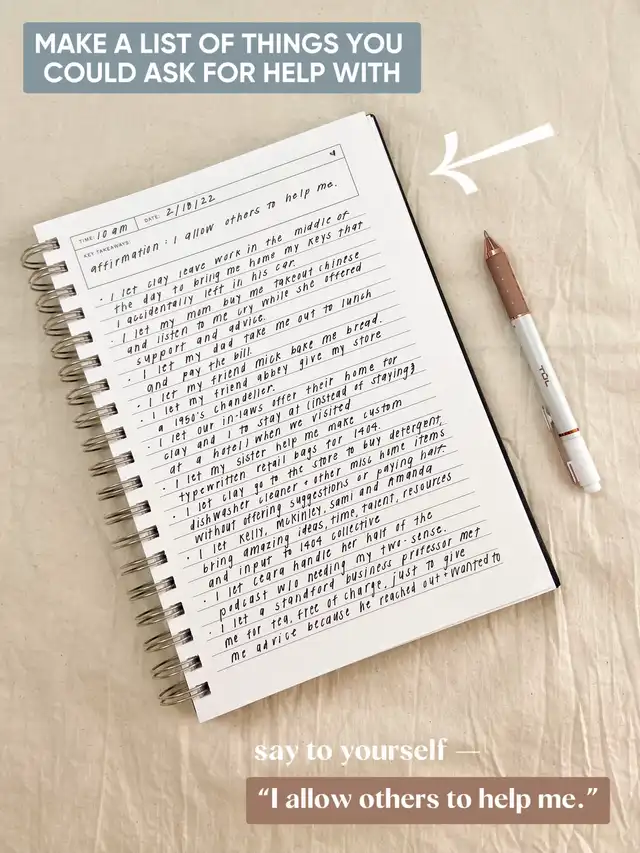 MAKE A LIST OF THINGS YOU
COULD ASK FOR HELP WITH
TIME: 10am DATE: 2/18/22
KEY TAKEAWAYS:
affirmation: I allow others to help me.
• I let clay leave work in the middle of
the day to bring me home my keys that
I accidentally left in his car.
• I let my mom buy me takeout chinese
and listen to me cry while she offered
support and advice.
• I let my dad take me out to lunch
and pay the bill.
• I let my friend mick bake me bread.
• I let my friend abbey give my store
a 1950's chandelier.
• I let our in-laws offer their home for
clay and I to stay at (instead of staying
at a hotel) when we visited
• I let my sister help me make custom
typewritten retail bags for 1404.
• I let clay go to the store to buy detergent,
dishwasher cleaner + other misc home items
without offering suggestions or paying half.
• I let Kelly, McKinley, Sami and Amanda
bring amazing ideas, time, talent, resources
and input to 1404 collective
• I let ceara handle her half of the
podcast w/o needing my two-sense.
• I let a standford business professor met
me for tea, free of charge, just to give
me advice because he reached out + wanted to
TUL
say to yourself —
"I allow others to help me."